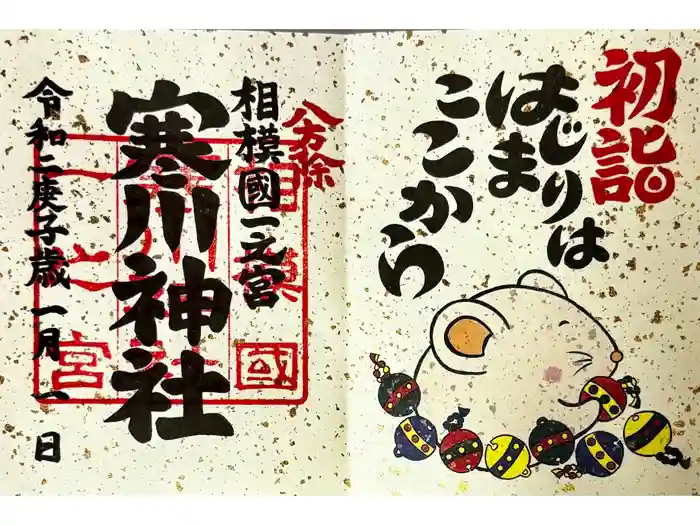 初詣
はじりは
はま
ここから
八方除
相模國一之宮
寒川神社
令和二庚子歳一月一日
相模國一之宮